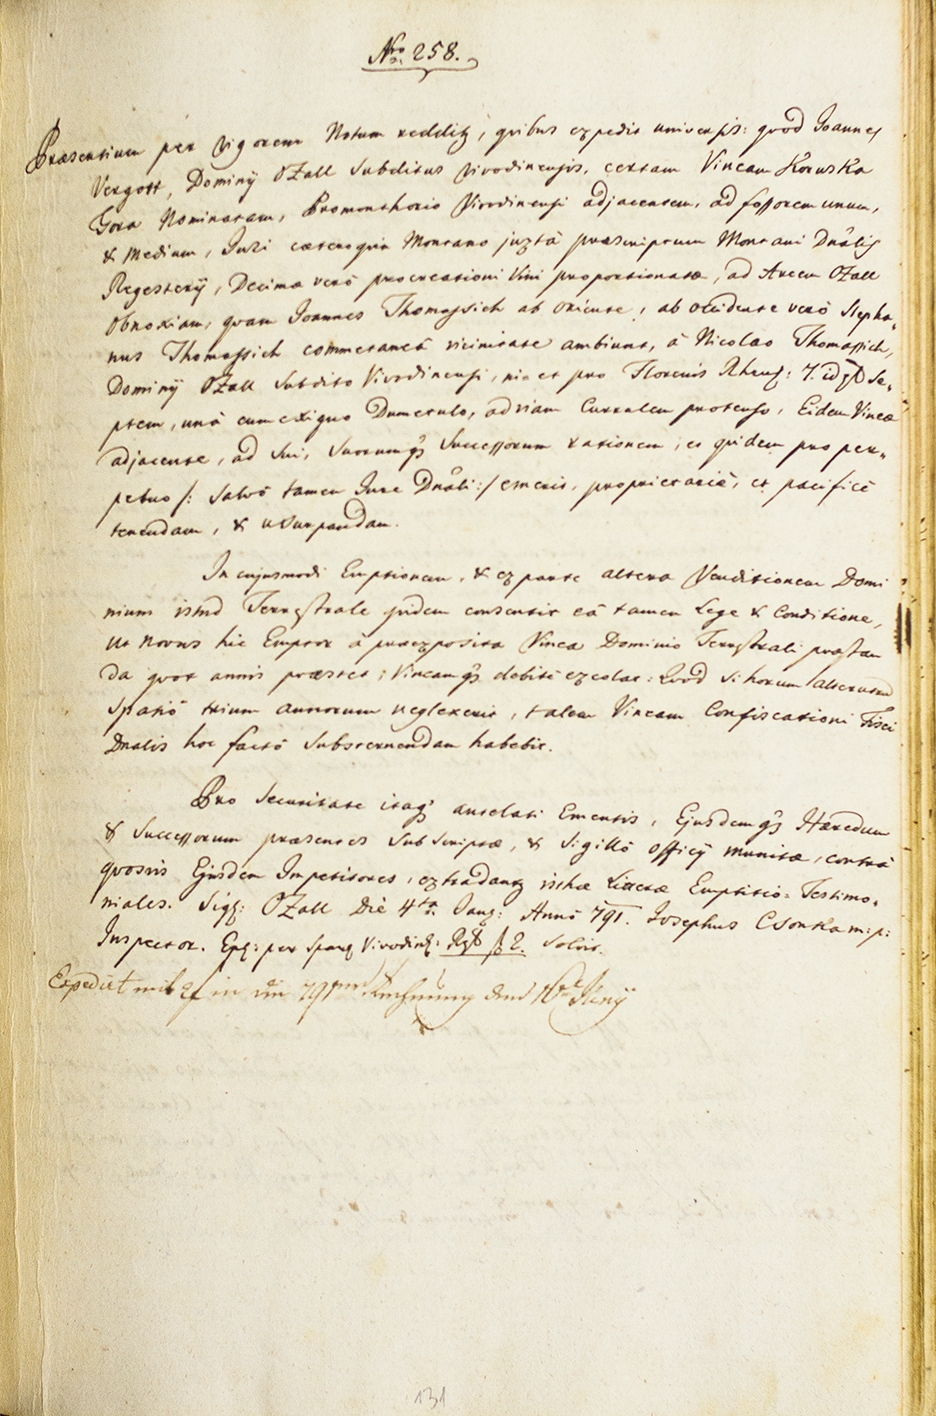 Nro 258.
Præsentium per vigorem Notum redditq, quibus expedit universis: quod Joannes
Vergott, Dominij OZall Subditus Vivodinensis, certam Vineam Koruska
Gora Nominatam, Promonthorio Vivodinensi adjacentem, ad fossorem unum,
& medium, Juri cæteroquin Montano juxtà præscriptum Montani Dnâlis
Regesterij, Decimæ verò procreationi Vini proportionatæ, ad Arcem OZall
obnoxiam, quam Joannes Thomassich ab oriente, ab occidente verò Stepha-
nus Thomassich commetaneâ vicinitate ambiunt, à Nicolao Thomassich,
Dominij OZall Subdito Vivodinensi, pro Florenis Rhens: 7. id est Se-
ptem, unà cum exiguo Dumetulo, ad viam Curralem protenso, Eidem Vineæ
adjacente, ad Sui, Suorumqs Successorum rationem, et quidem pro per-
petuo /: Salvô tamen Jure Dnâli :/ emerit, proprietariè, et pacificè
tenendam, & usurpandam.
In cujusmodi Emptionem, & ex parte altera Venditionem Domi
nium istud Terrestrale pridem consentit eâ tamen Lege & Conditione,
ut novus hic Emptor à præexposita Vinea Dominio Terrestrali præstan
da quot annis præstet; Vineamqs debitè excolat: Quod si horum alterutrum
Spatiô trium annorum neglexerit, talem Vineam Confiscationi Fisci
Dnalis hoc factô Subsernendam habebit.
Pro Securitate itaqs antelati Ementis, Ejusdemqs Hæredum
& Successorum præsentes Subscriptæ, & Sigillô officij munitæ, contrà
quosvis Ejusdem Impetitores, extradantq isthæ Litteræ Emptitio-Testimo-
niales. Sigs: OZall Die 4ta Janq: Annô 791. Josephus Csonka m:p:
Inspector. Epl: per Spanq Vivodins: f 2. Solvit.
Expedirt mit 2f in die 791ger Rechnung den 10t
131